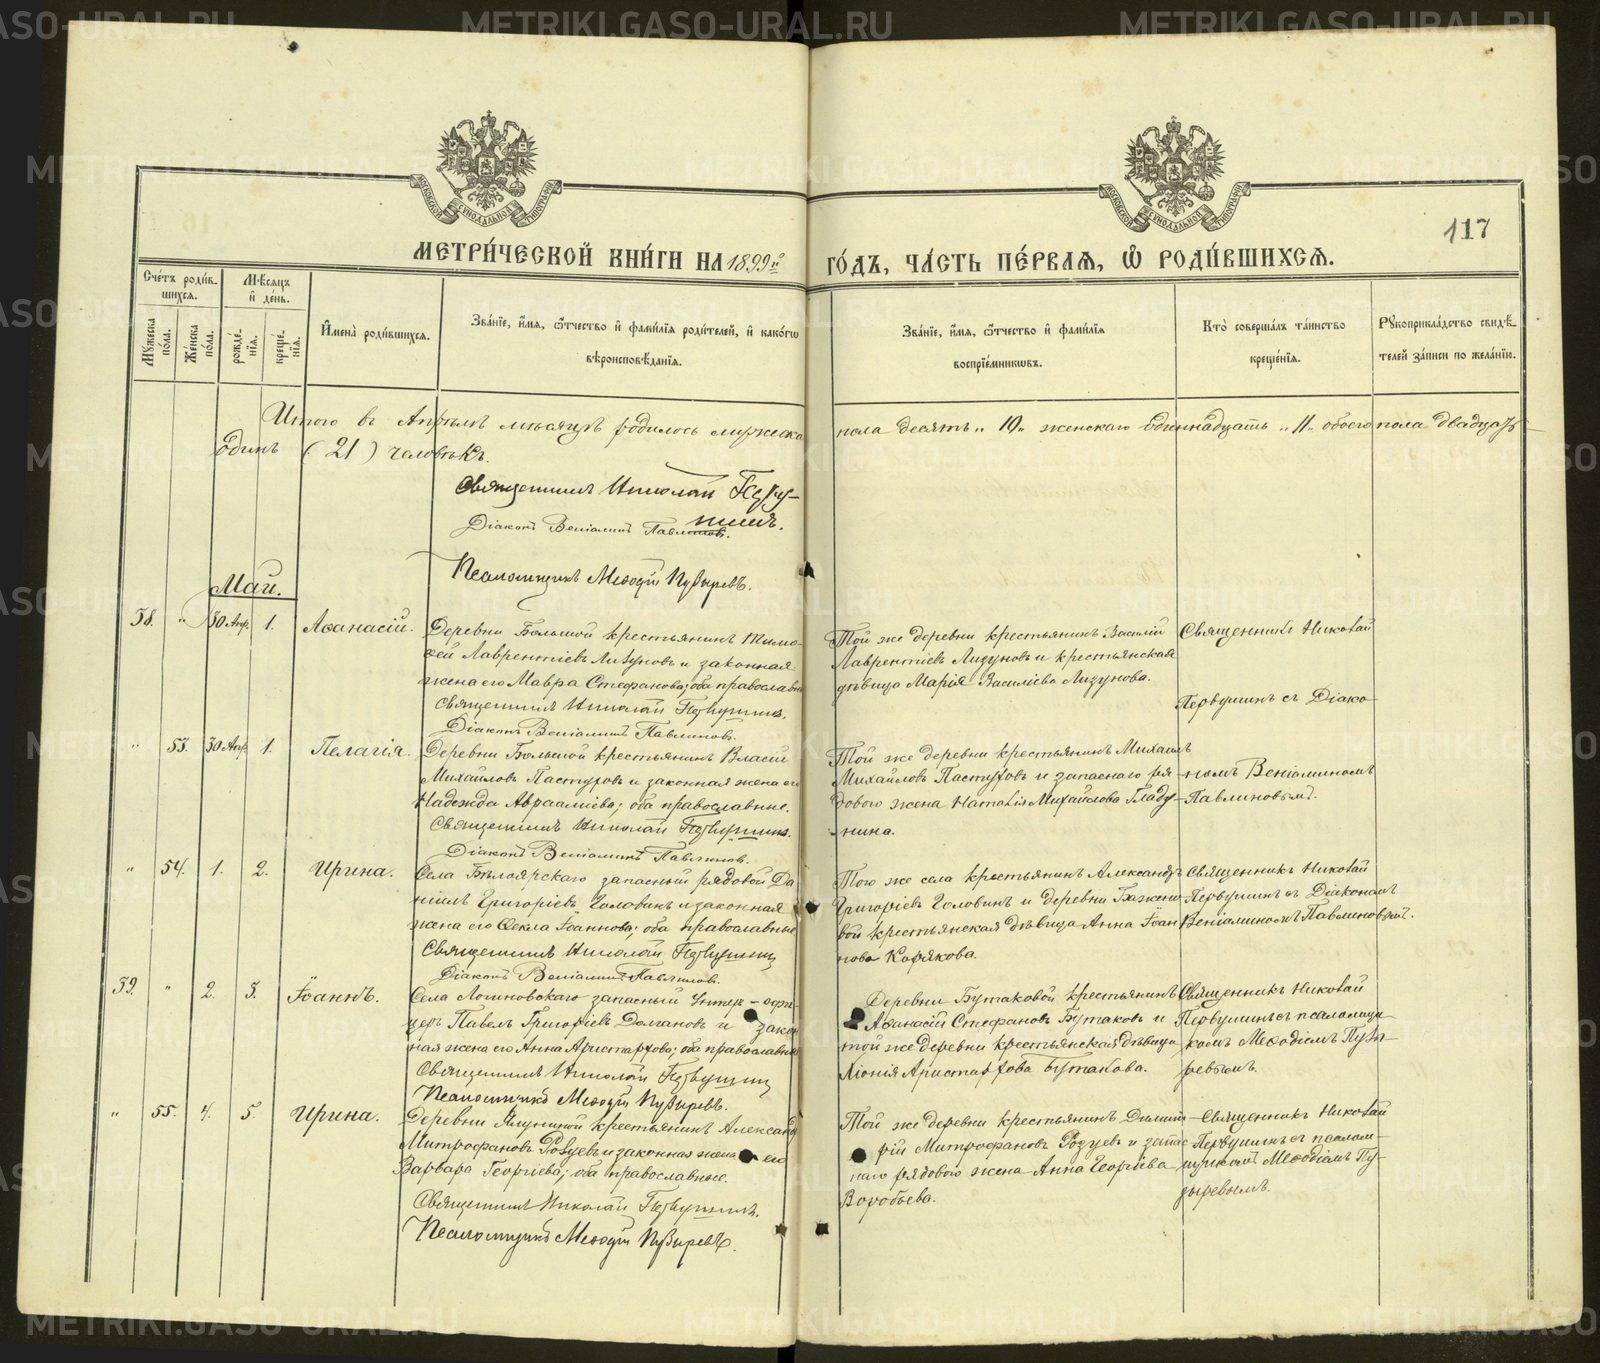 МЕТРИ́ЧЕСКОЙ КНИ́ГИ НА 1899й ГО́ДЪ, ЧА́СТЬ ПЕ́РВАЯ, Ѡ РОДИ́ВШИХСЯ.
117
Сче́тъ роди́в-
шихся.
Мѣ́сяцъ
и҆ день.
И҆мена̀ роди́вшихся.
Зва́нїе, и҆́мя, ѻ҆́тчество и҆ фами́лїя роди́телей, и҆ како́гѡ
вѣроисповѣ́данїя.
Зва́нїе, и҆́мя, ѻ҆́тчество и҆ фами́лїя
воспрїе́мникѡвъ.
Кто̀ соверша́лъ та́инство
креще́нїя.
Рꙋкоприкла́дство свидѣ́-
телей за́писи по жела́нїю.
Мꙋ́жеска
по́ла.
Же́нска
по́ла.
рожде́-
нїя.
креще́-
нїя.
Итого въ Апрѣлѣ мѣсяцѣ родилось мужеска пола десять „ 10 „ женскаго одиннадцать „ 11 „ обоего пола двадцать
одинъ ( 21 ) человѣкъ.
Священникъ Николай Перву-
шинъ.
Діаконъ Веніаминъ Павлиновъ.
Псаломщикъ Меѳодій Пузыревъ.
Май.
58. „ 30 Апр. 1. Аѳанасій.
Деревни Большой крестьянинъ Тимо-
ѳей Лаврентіевъ Лизуновъ и законная
жена его Мавра Стефанова; оба православн.
Священникъ Николай Первушинъ.
Діаконъ Веніаминъ Павлиновъ.
Той же деревни крестьянинъ Василій
Лаврентіевъ Лизуновъ и крестьянская
дѣвица Марія Василіева Лизунова.
Священникъ Николай
Первушинъ съ Діако-
„ 53. 30 Апр. 1. Пелагія.
Деревни Большой крестьянинъ Власій
Михайловъ Пастуховъ и законная жена его
Надежда Авраамиева; оба православные.
Священникъ Николай Первушинъ.
Діаконъ Веніаминъ Павлиновъ.
Той же деревни крестьянинъ Михаилъ
Михайловъ Пастуховъ и запаснаго ря-
доваго жена Наталія Михайлова Гладу-
-нина.
номъ Веніаминомъ
Павлиновымъ.
„ 54. 1. 2. Ирина.
Села Бѣлоярскаго запасный рядовой Да-
ніилъ Григоріевъ Головинъ и законная
жена его Ѳекла Іоаннова; оба православные
Священникъ Николай Первушинъ
Діаконъ Веніаминъ Павлиновъ.
Того же села крестьянинъ Александръ
Григоріевъ Головинъ и деревни Бажено-
вой крестьянская дѣвица Анна Іоан-
нова Корякова.
Священникъ Николай
Первушинъ съ Діакономъ
Веніаминомъ Павлиновымъ.
59. „ 2. 3. Іоаннъ.
Села Логиновскаго запасный Унтер-офи-
церъ Павелъ Григоріевъ Долгановъ и закон-
ная жена его Анна Аристархова; оба православные
Священникъ Николай Первушинъ
Псаломщикъ Меѳодій Пузыревъ.
Деревни Бутаковой крестьянинъ
Аѳанасій Стефановъ Бутаковъ и
той же деревни крестьянская дѣвица
Хіонія Аристархова Бутакова.
Священникъ Николай
Первушинъ съ псаломщи-
комъ Меѳодіемъ Пузы-
ревымъ.
„ 55. 4. 5. Ирина.
Деревни Ялуниной крестьянинъ Александръ
Митрофановъ Розуевъ и законная жена его
Варвара Георгіева; оба православные.
Священникъ Николай Первушинъ.
Псаломщикъ Меѳодій Пузыревъ.
Той же деревни крестьянинъ Димит-
рій Митрофановъ Розуевъ и запас-
наго рядового жена Анна Георгіева
Воробьева.
Священникъ Николай
Первушинъ съ псалом-
щикомъ Меѳодіемъ Пу-
зыревымъ.
METRIKI.GASO-URAL.RU